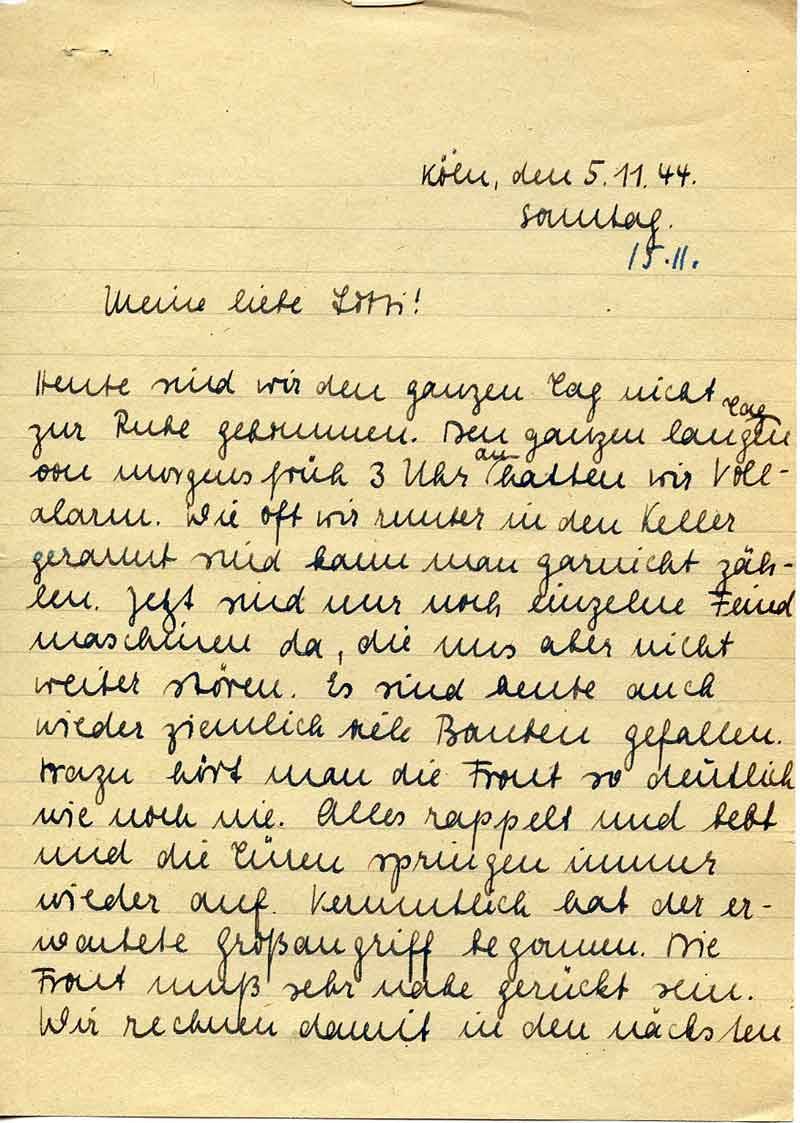 Köln, den 5.11.44.
Sonntag.
15.11.
Meine liebe Lotti!
Heute sind wir den ganzen Tag nicht
zur Ruhe gekommen. Den ganzen langen Tag
von morgens früh 3 Uhr an hatten wir Voll-
alarm. Wie oft wir runter in den Keller
gerannt sind kann man garnicht zäh-
len. Jetzt sind nur noch einzelne Feind
maschinen da, die uns aber nicht
weiter stören. Es sind heute auch
wieder ziemlich viele Bomben gefallen.
Dazu hört man die Front so deutlich
wie noch nie. Alles rappelt und bebt
und die Türen springen immer
wieder auf. Vermutlich hat der er-
wartete Großangriff begonnen. Die
Front muß sehr nahe gerückt sein.
Wir rechnen damit in den nächsten